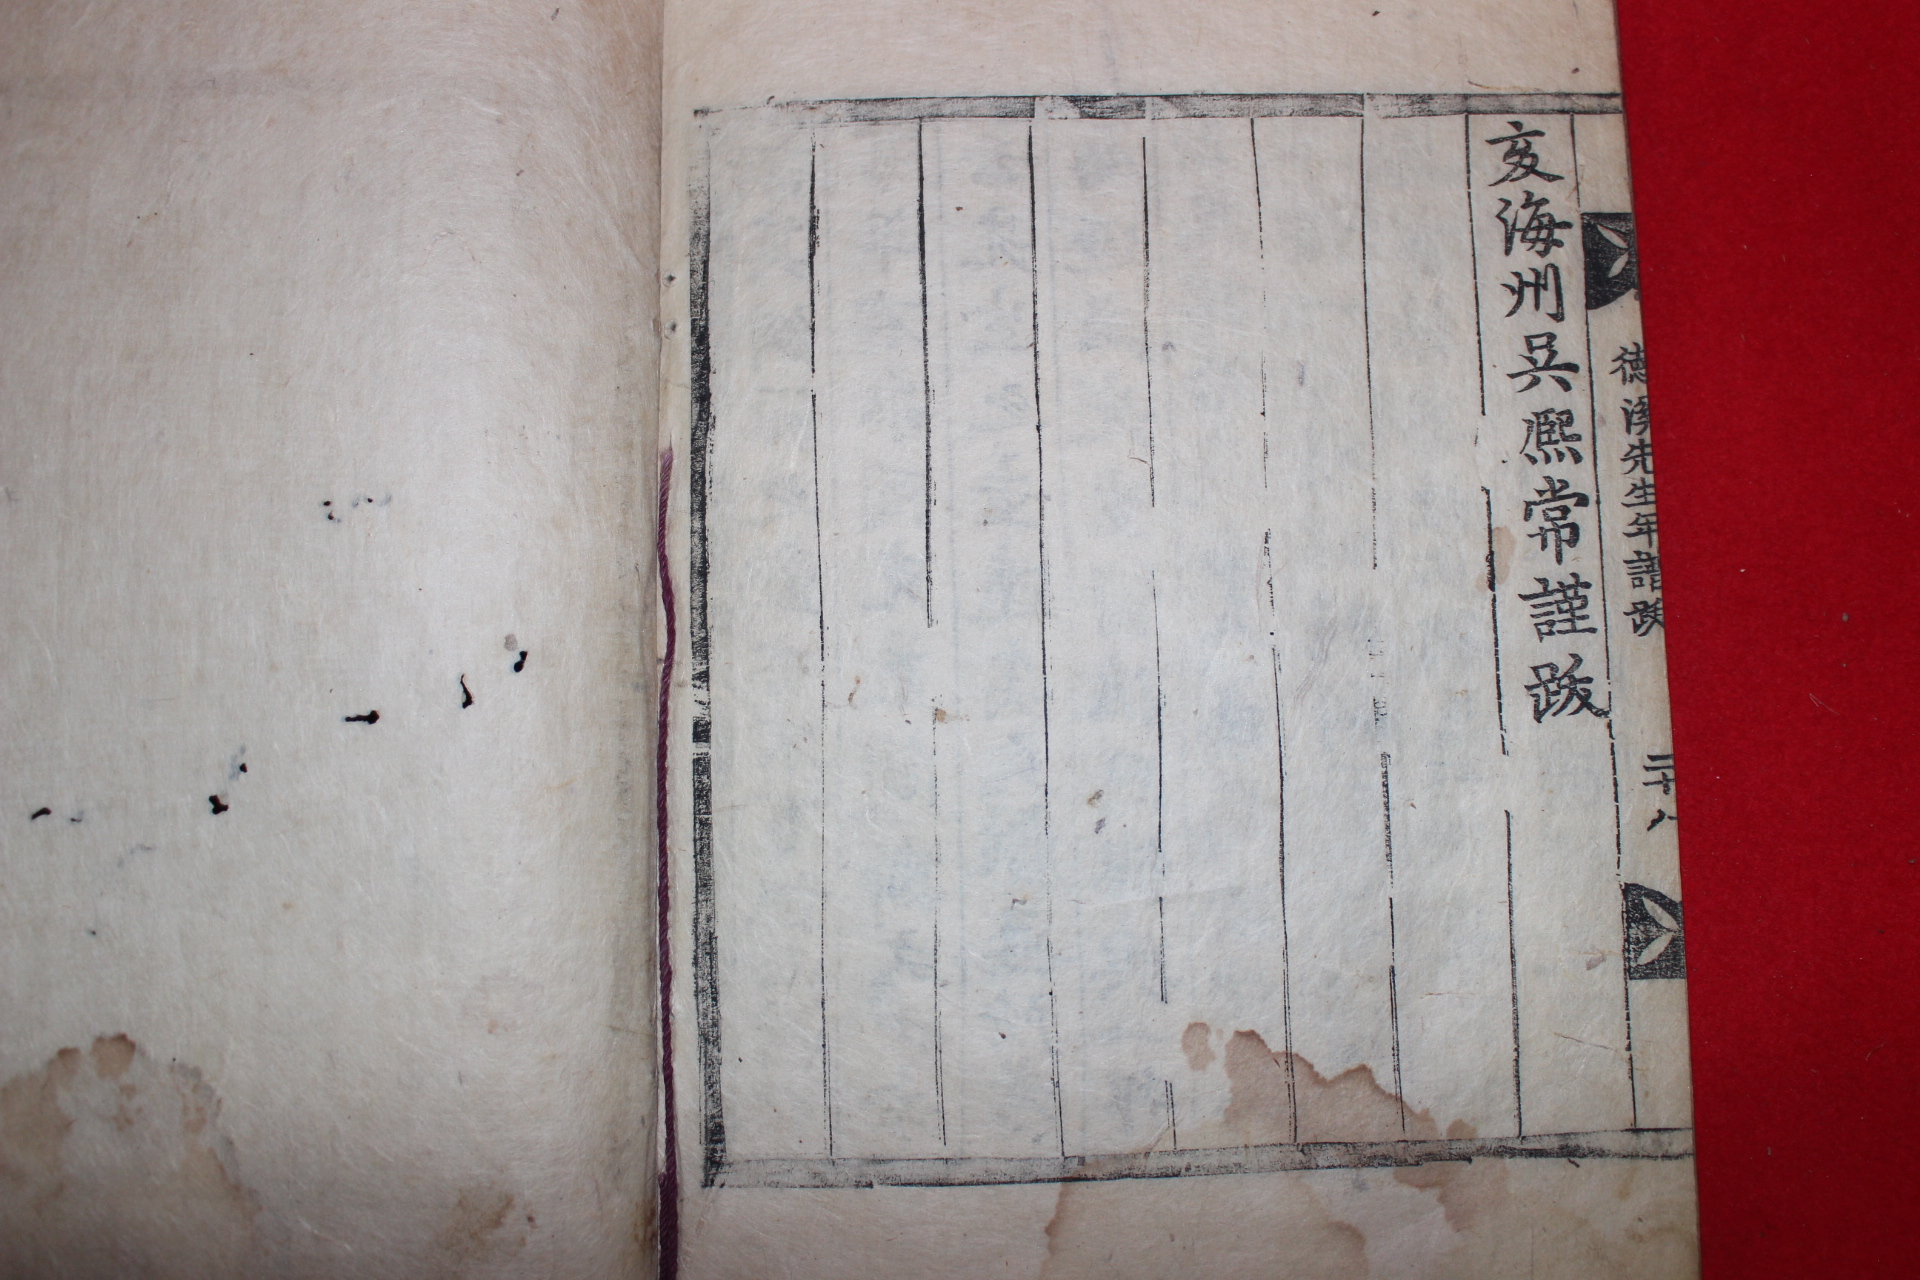 亥海州吳熙常謹跋
德溪先生年譜跋 二十八